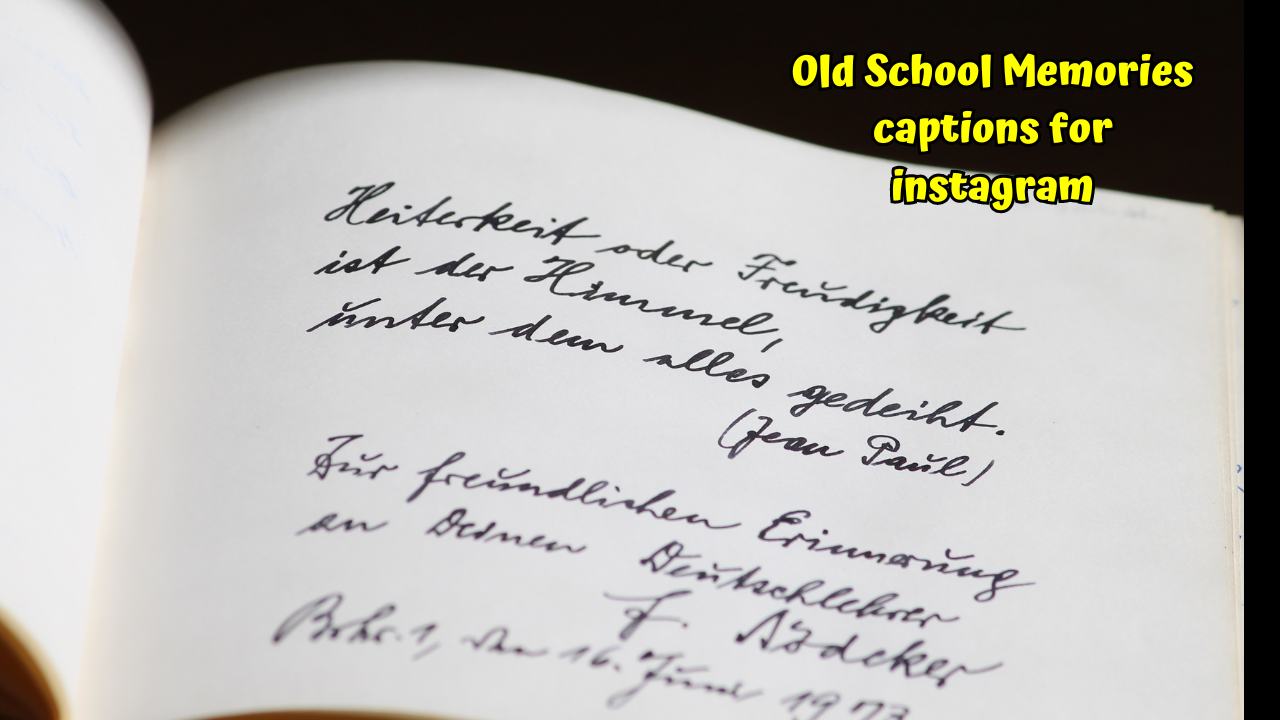 Old School Memories
captions for
instagram
Heiterkeit oder Freudigkeit
ist der Himmel,
unter dem alles gedeiht.
(Jean Paul)
Zur freundlichen Erinnerung
an Deinen Deutschlehrer
F.
den 16. Juni 1973